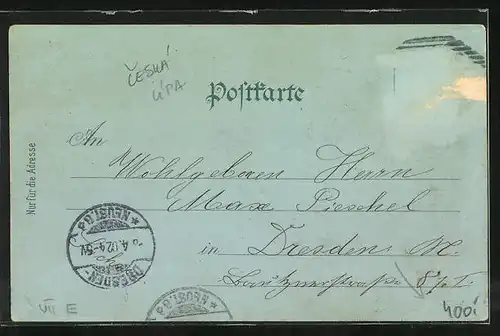 ČESKÁ
LÍPA
Postkarte
Nur für die Adresse
An
Wohlgeboren Herrn
Max Pieschel
in Dresden N.
Bautznerstrasse 8 I
DRESDEN-
NEUST.
4.02
VII E
400